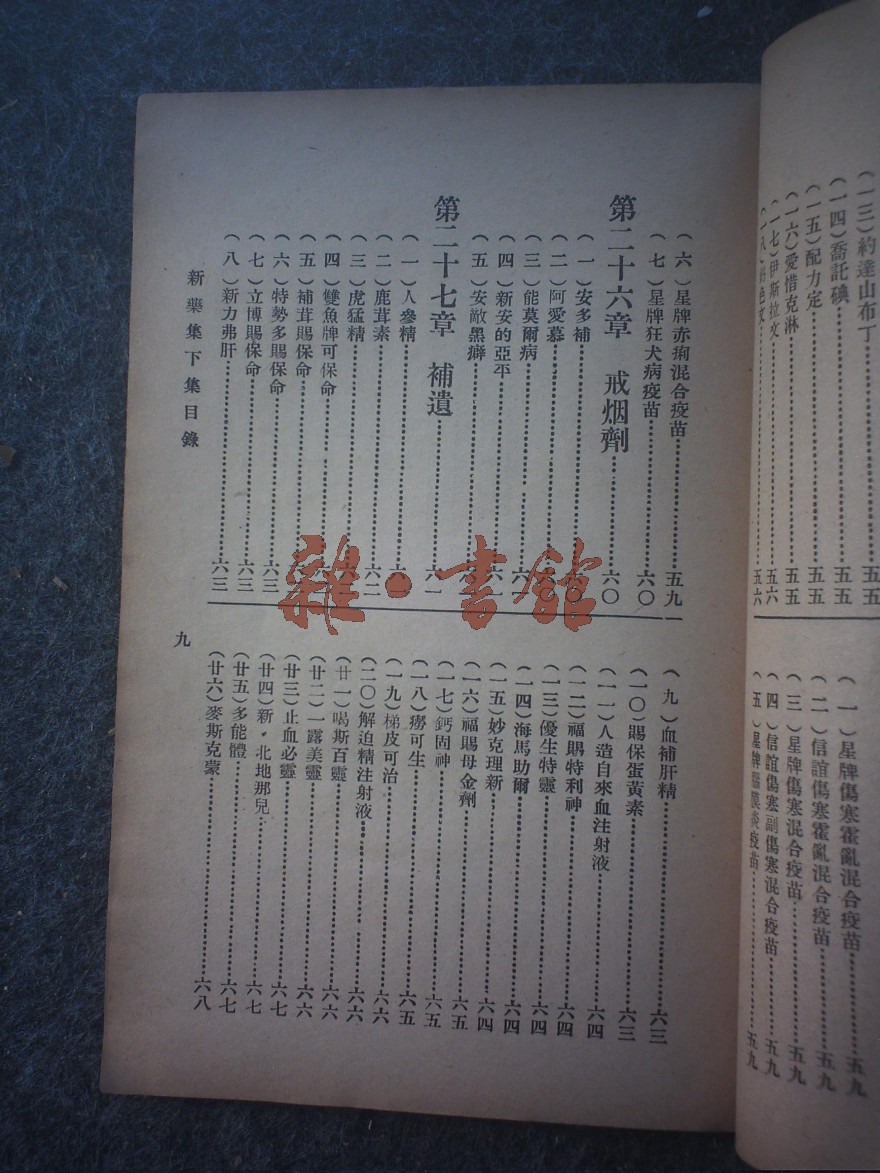 (一三)約達山布丁……五五
(一四)喬託碘……五五
(一五)配力定……五五
(一六)愛惜克淋……五五
(一七)伊斯拉文……五六
(一)星牌傷寒霍亂混合疫苗……五九
(二)信誼傷寒霍亂混合疫苗……五九
(三)星牌傷寒混合疫苗……五九
(四)信誼傷寒副傷寒混合疫苗……五九
(五)星牌腦膜炎疫苗……五九
(六)星牌赤痢混合疫苗……五九
(七)星牌狂犬病疫苗……六〇
第二十六章 戒烟劑……六〇
(一)安多補……六〇
(二)阿愛慕……〇
(三)能莫爾病
(四)新安的亞平
(五)安敵黑癖
第二十七章 補遺……六一
(一)人參精
(二)鹿茸素……六二
(三)虎猛精
(四)雙魚牌可保命
(五)補茸賜保命
(六)特勢多賜保命……六三
(七)立博賜保命……六三
(八)新力弗肝……六三
新藥集下集目錄
九
(九)血補肝精……六三
(一〇)賜保蛋黃素……六三
(一一)人造自來血注射液……六四
(一二)福賜特利神……六四
(一三)優生特靈……六四
(一四)海馬助爾……六四
(一五)妙克理新……六四
(一六)福賜母金劑……六五
(一七)鈣固神……六五
(一八)癆可生……六五
(一九)梯皮可治……六六
(二〇)解迫精注射液……六六
(廿一)喝斯百靈……六六
(廿二)一露美靈……六六
(廿三)止血必靈……六七
(廿四)新·北地那兒……六七
(廿五)多能體……六七
(廿六)麥斯克蒙……六八
雜·書館